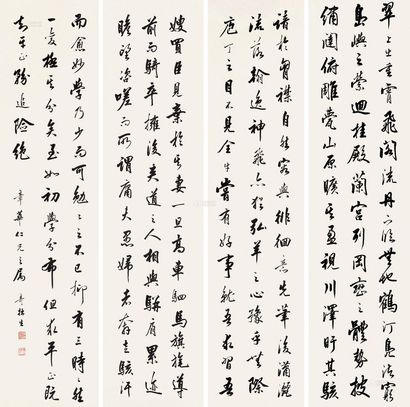 翠上出重霄飛閣流丹下臨無地鶴汀鳧渚窮
島嶼之縈迴桂殿蘭宮列岡巒之體勢披
綉闥俯雕甍山原曠其盈視川澤盱其駭
語於胸襟自然容與徘徊意先筆後瀟灑
流落翰逸神飛亦猶弘羊之心豫乎無際
庖丁之目不見全牛嘗有好事就吾求習吾
嫂買臣見棄於其妻一旦高車駟馬旗旄導
前而騎卒擁後夾道之人相與駢肩累迹
瞻望咨嗟而所謂庸夫愚婦者奔走駭汗
而愈妙學乃少而可勉勉之不已抑有三時時然
一變極其分矣至如初學分布但求平正既
知平正務追險絕
章華仁兄之屬